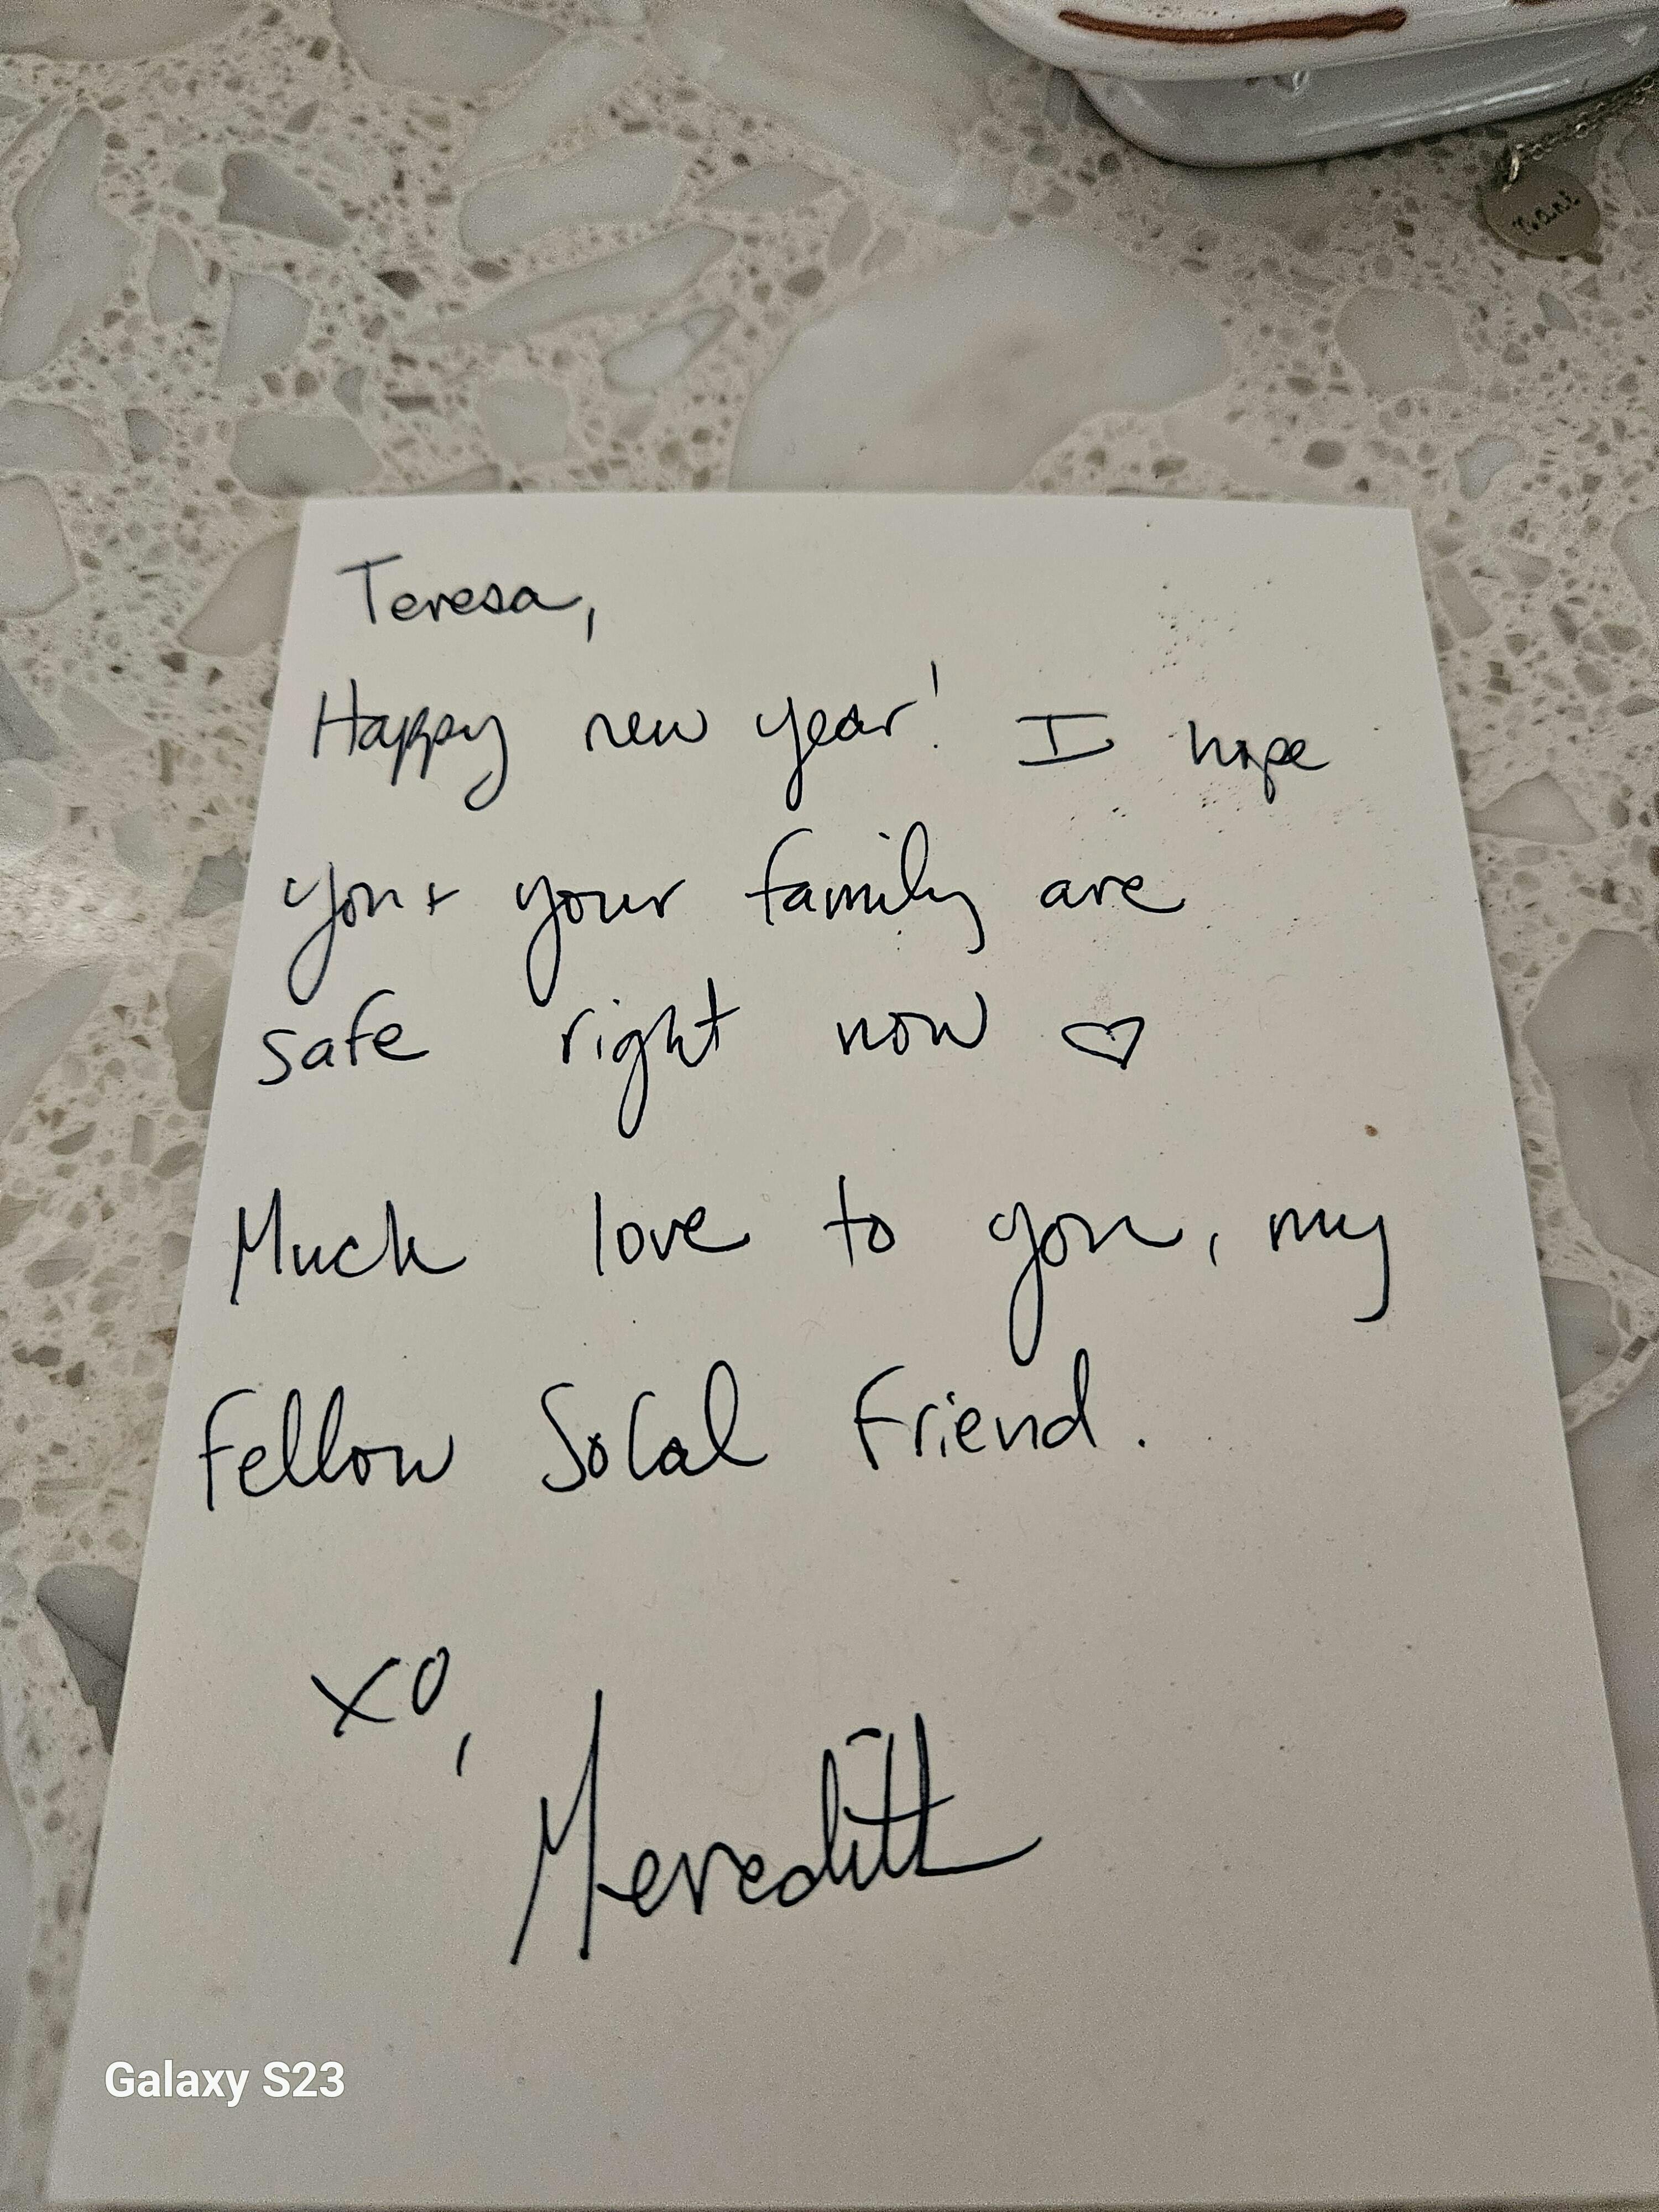 nani
Teresa,
Happy new year! I hope
you + your family are
safe right now ♡
Much love to you, my
fellow SoCal friend.
XO,
Meredith
Galaxy S23